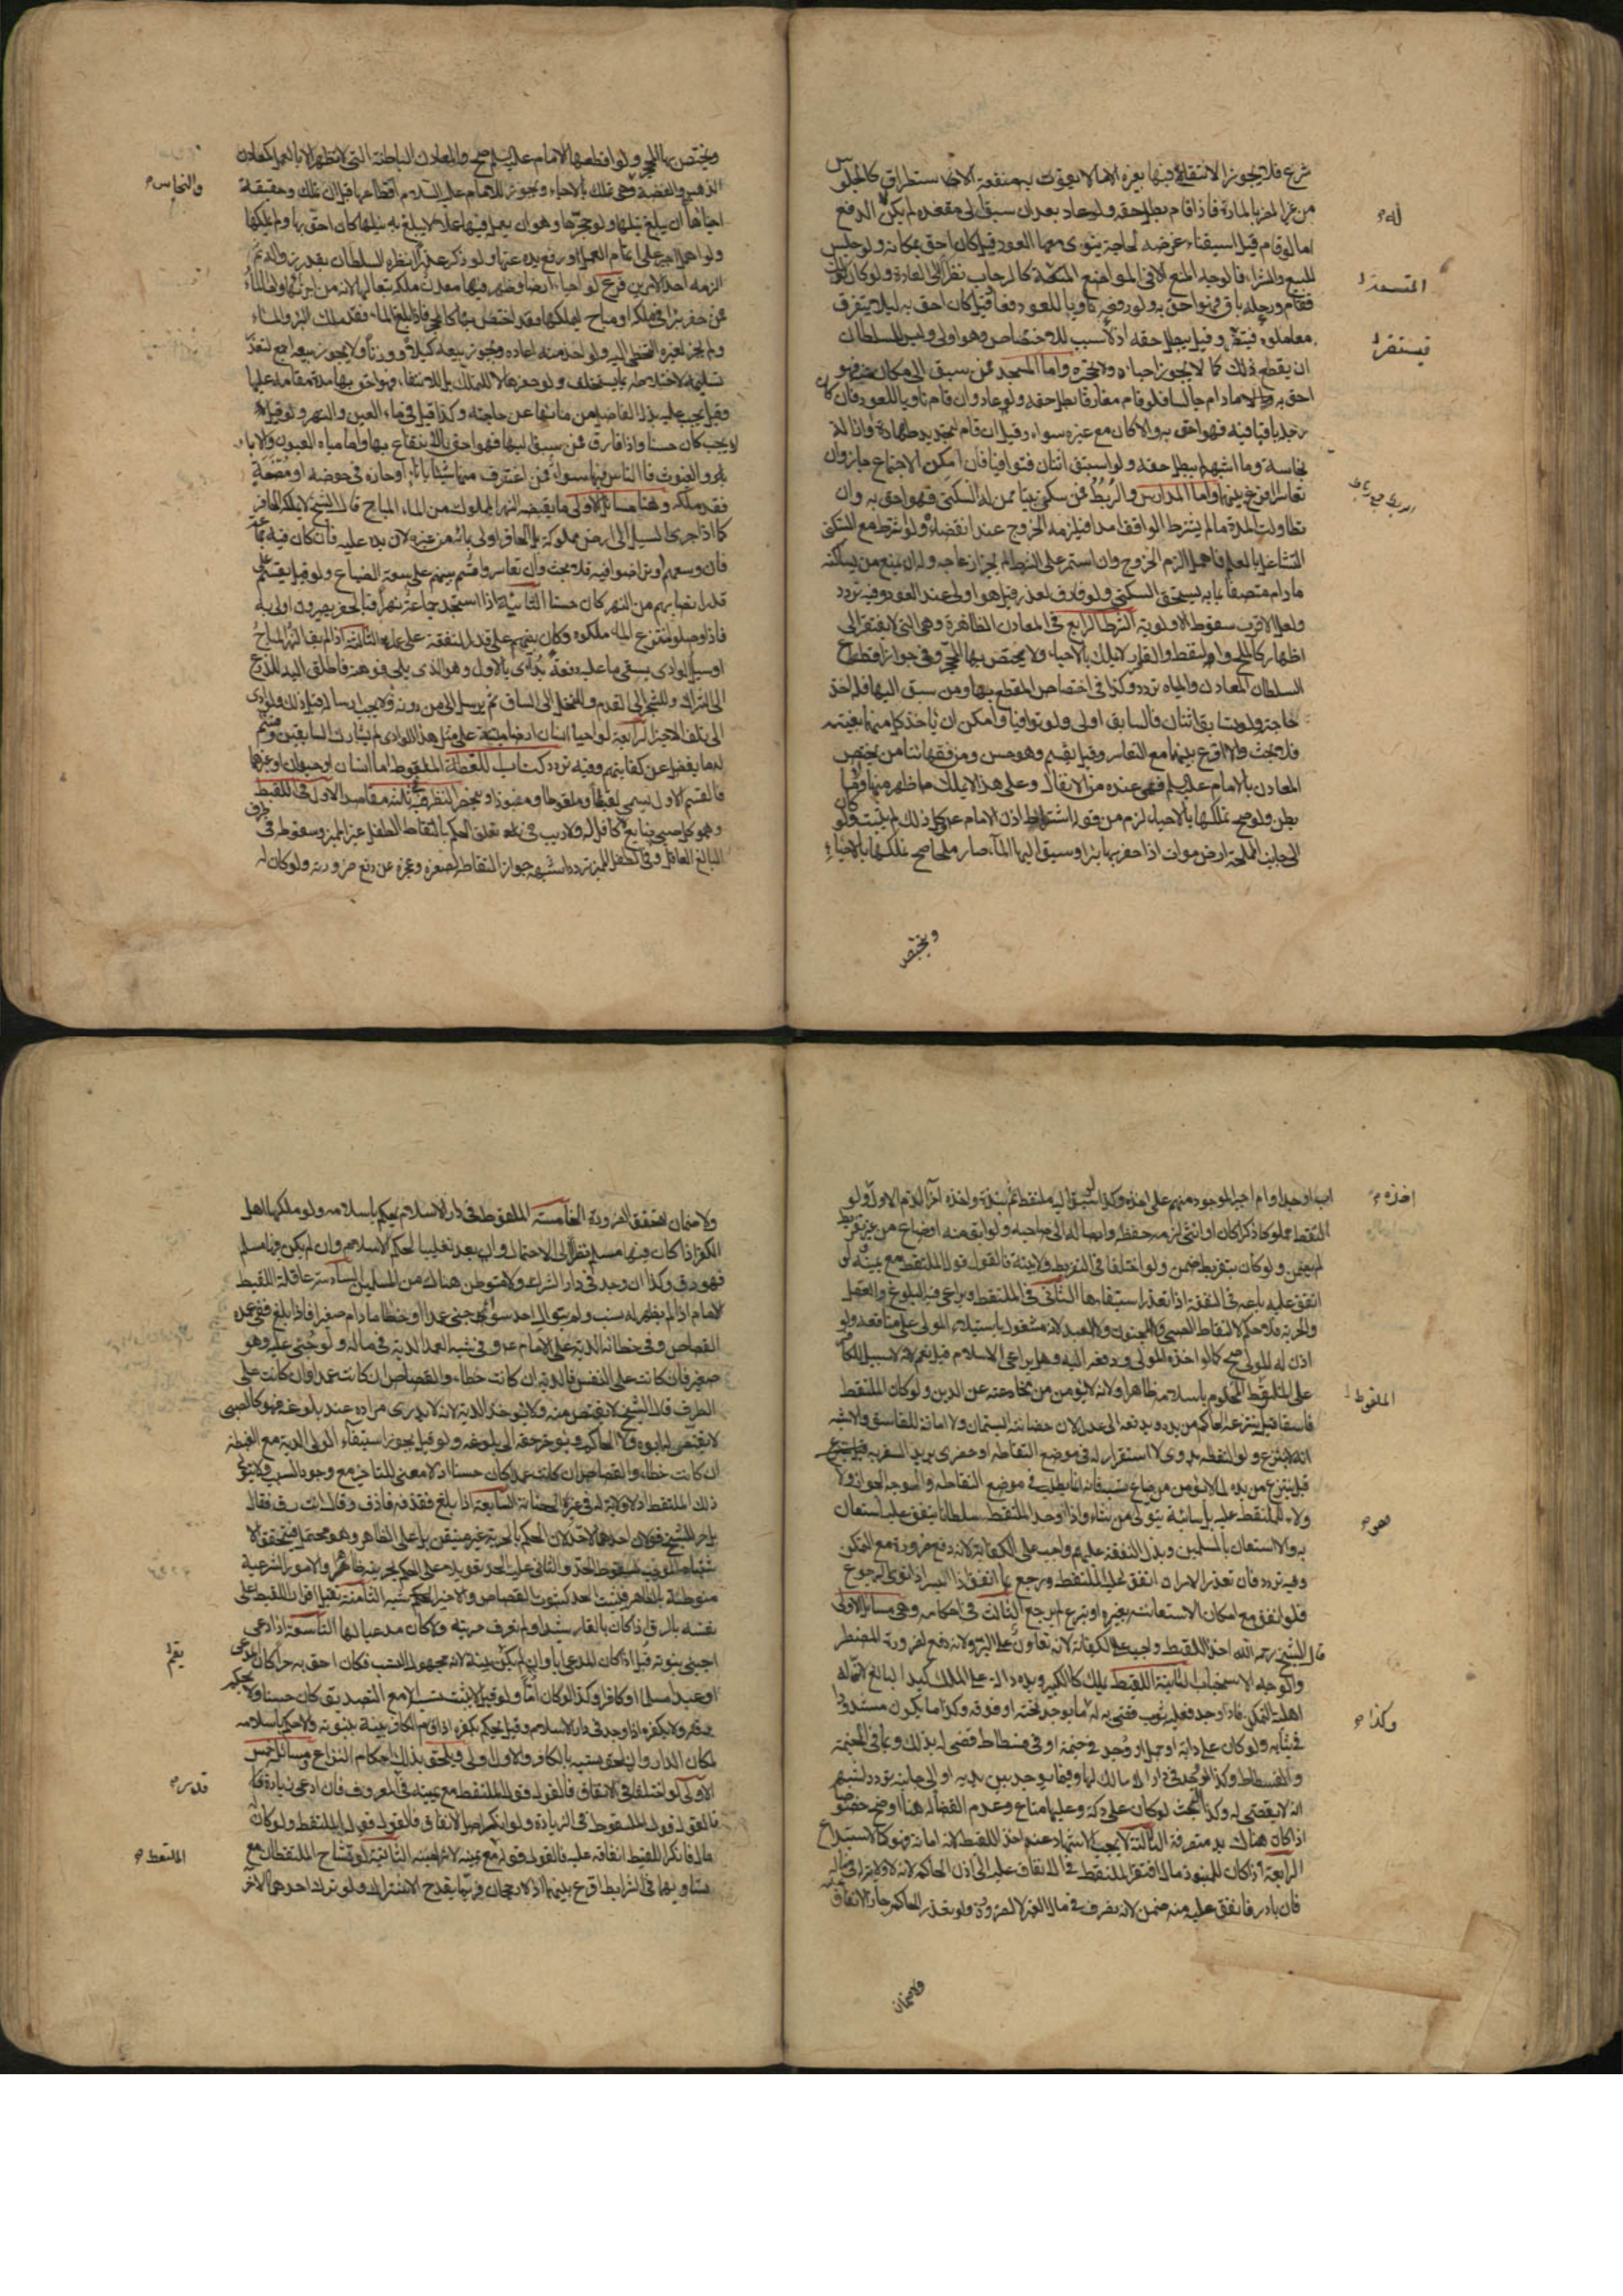 شرع فلا يجوز الانتفاع فيها بغيره الا ما لا يفوت به منفعة الاستطراق كالجلوس
من غير المضر بالمارة فاذا قام بطل حقه ولو عاد بعد ان سبق الى مقعده لم يكن له الدفع
اما لو قام قبل استيفاء غرضه لحاجة ينوى معها العود قيل كان احق بمكانه ولو جلس
للبيع والشراء فالوجه المنع الا فى المواضع المتسعة كالرحاب نظرا الى العادة ولو كان كذلك
فقام ورحله باق فهو احق به ولو رفعه ناويا للعود فعاد قيل كان احق به لئلا يتفرق
معاملوه فيستضر وقيل يبطل حقه اذ لا سبب للاختصاص وهو اولى وليس للسلطان
ان يقطع ذلك كما لا يجوز احياؤه ولا تحجيره واما المسجد فمن سبق الى مكان منه فهو
احق به ما دام جالسا فلو قام مفارقا بطل حقه ولو عاد وان قام ناويا للعود فان كان
رحله باقيا فيه فهو احق به والا كان مع غيره سواء وقيل ان قام لتجديد طهارة وازالة
نجاسة وما اشبهه لم يبطل حقه ولو استبق اثنان فتوافيا فان امكن الاجتماع جاز وان
تعاسرا اقرع بينهما واما المدارس والربط فمن سكن بيتا ممن له السكنى فهو احق به وان
تطاولت المدة ما لم يشترط الواقف امدا فيلزمه الخروج عند انقضائه ولو شرط مع السكنى
التشاغل بالعلم فاهمل الزم الخروج وان استمر على الشرط لم يجز ازعاجه وله ان يمنع من يساكنه
ما دام متصفا بما به يستحق السكنى ولو فارق لعذر قيل هو اولى عند العود وفيه تردد
ولعل الاقرب سقوط الاولوية الطرف الرابع فى المعادن الظاهرة وهى التى لا تفتقر الى
اظهار كالملح والنفط والقار لا تملك بالاحياء ولا يختص بها المحجر وفى جواز اقطاع
السلطان المعادن والمياه تردد وكذا فى اختصاص المقطع بها ومن سبق اليها فله اخذ
حاجته ولو تسابق اثنان فالسابق اولى ولو توافيا وامكن ان ياخذ كل منهما بغيته
فلا بحث والا اقرع بينهما مع التعاسر وقيل يقسم وهو حسن ومن فقهائنا من يختص
المعادن بالامام عليه السلام فهى عنده من الانفال وعلى هذا لا يملك ما ظهر منها وما
بطن ولو صح تملكها بالاحياء لزم من قوله اشتراط اذن الامام عليه السلام وكل ذلك لم يثبت ولو كان
الى جانب المملحة ارض موات اذا حفر بها بئرا وسيق اليها الماء صار ملحا صح تملكها بالاحياء
ويختص
له
المتسعة
فيستضر
الربط جمع رباط
ويختص بها المحجر ولو اقطعها الامام عليه السلم صح والمعادن الباطنة التى لا تظهر الا بالعمل كمعادن
الذهب والفضة وهى تملك بالاحياء ويجوز للامام عليه السلام اقطاعها قبل ان تملك وحقيقة
احيائها ان يبلغ نيلها ولو حجرها وهو ان يعمل فيها عملا لا يبلغ به نيلها كان احق بها ولم يملكها
ولو اهمل اجبر على اتمام العمل او رفع يده عنها ولو ذكر عذرا انظره السلطان بقدر زواله ثم
الزمه احد الامرين فرع لو احيا ارضا وظهر فيها معدن ملكه تبعا لها لانه من اجزائها واما الماء
فمن حفر بئرا فى ملكه او مباح ليملكها فقد اختص بها كالمحجر فاذا بلغ الماء فقد ملك البئر والماء
ولم يجز لغيره التخطى اليه ولو اخذ منه اعاده ويجوز بيعه كيلا ووزنا ولا يجوز بيعه اجمع لتعذر
تسليمه لاختلاطه بما يستخلف ولو حفرها لا للتملك بل للانتفاع فهو احق بها مدة مقامه عليها
وقيل يجب عليه بذل الفاضل من مائها عن حاجته وكذا قيل فى ماء العين والنهر ولو قيل
لا يجب كان حسنا واذا فارق فمن سبق اليها فهو احق بالانتفاع بها واما مياه العيون والابار
والغيوث فالناس فيها سواء فمن اغترف منها شيئا باناء او حازه فى حوضه او مصنعه
فقد ملكه وهنا مسائل الاولى ما يقبضه النهر المملوك من الماء المباح قال الشيخ لا يملكه الحافر
كما اذا جرى السيل الى ارض مملوكة بل الحافر اولى بمائه من غيره لان يده عليه فان كان فيه جماعة
فان وسعهم او تراضوا فيه فلا بحث وان تعاسروا قسم بينهم على سعة الضياع ولو قيل يقسم على
قدر انصبائهم من النهر كان حسنا الثانية اذا استجد جماعة نهرا فبالحفر يصيرون اولى به
فاذا وصلوا منتزع الماء ملكوه وكان بينهم على قدر النفقة على عمله الثالثة اذا لم يف النهر المباح
او سيل الوادى بسقى ما عليه دفعة بدئ بالاول وهو الذى يلى فوهته فاطلق اليه للزرع
الى الشراك وللشجر الى القدم وللنخل الى الساق ثم يرسل الى من دونه ولا يجب ارساله قبل ذلك ولو ادى
الى تلف الاخير الرابعة لو احيا انسان ارضا ميتة على مثل هذا الوادى لم يشارك السابقين وقسم
له ما يفضل عن كفايتهم وفيه تردد كتاب اللقطة الملقوط اما انسان او حيوان او غيرهما
فالقسم الاول يسمى لقيطا وملقوطا ومنبوذا وينحصر النظر فيه فى ثلثة مقاصد الاول فى اللقيط
وهو كل صبى ضايع لا كافل له ولا ريب فى تعلق الحكم بالتقاط الطفل غير المميز وسقوطه فى طرف
البالغ العاقل وفى الطفل المميز تردد اشبهه جواز التقاطه لصغره وعجزه عن دفع ضرورته ولو كان له
والنحاس
اب او جد او ام اجبر الموجود منهم على اخذه وكذا لو سبق اليه ملتقط ثم نبذه واخذه اخر الزم الاول ولو
التقط مملوكا ذكرا كان او انثى لزمه حفظه وايصاله الى صاحبه ولو ابق منه او ضاع من غير تفريط
لم يضمن ولو كان بتفريط ضمن ولو اختلفا فى التفريط ولا بينة فالقول قول الملتقط مع يمينه ولو
انفق عليه باعه فى النفقة اذا تعذر استيفاءها الثانى فى الملتقط ويراعى فيه البلوغ والعقل
والحرية فلا حكم لالتقاط الصبى ولا المجنون ولا العبد لانه مشغول باستيلاء المولى على منافعه ولو
اذن له المولى صح كما لو اخذه المولى ودفعه اليه وهل يراعى الاسلام قيل نعم لانه لا سبيل للكافر
على الملقوط المحكوم باسلامه ظاهرا ولانه لا يؤمن من مخادعته عن الدين ولو كان الملتقط
فاسقا قيل ينتزعه الحاكم من يده ويدفعه الى عدل لان حضانته استيمان ولا امانة للفاسق والاشبه
انه لا ينتزع ولو التقطه بدوى لا استقرار له فى موضع التقاطه او حضرى يريد السفر به
قيل ينتزع من يده لما لا يؤمن من ضياع نسبه فانه انما يطلب فى موضع التقاطه والوجه الجواز ولا
ولاء للملتقط عليه بل سائبة يتولى من شاء واذا وجد الملتقط سلطانا ينفق عليه استعان
به والا استعان بالمسلمين وبذل النفقة عليهم واجب على الكفاية لانه دفع ضرورة مع التمكن
وفيه تردد فان تعذر الامران انفق عليه الملتقط ورجع بما انفق اذا ايسر اذا نوى الرجوع
فلو انفق مع امكان الاستعانة بغيره او تبرع لم يرجع الثالث فى احكامه وهى مسائل الاولى
قال الشيخ رحمه الله اخذ اللقيط واجب على الكفاية لانه تعاون على البر ولانه دفع لضرورة المضطر
والوجه الاستحباب الثانية اللقيط يملك كالكبير ويده دالة على الملك كيد البالغ لان له
اهلية التملك فاذا وجد عليه ثوب قضى به له وكذا ما يوجد تحته او فوقه وكذا ما يكون مشدودا
فى ثيابه ولو كان على دابة او جمل او وجد فى خيمة او فى فسطاط قضى له بذلك وبما فى الخيمة
والفسطاط وكذا لو وجد فى دار لا مالك لها وفيما يوجد بين يديه او الى جانبه تردد اشبهه
انه لا يقضى له وكذا البحث لو كان على دكة وعليها متاع وعدم القضاء له هنا اوضح خصوصا
اذا كان هناك يد متصرفة الثالثة لا يجب الاشهاد عند اخذ اللقيط لانه امانة فهو كالاستيداع
الرابعة اذا كان للمنبوذ مال افتقر الملتقط فى الانفاق عليه الى اذن الحاكم لانه لا ولاية له فى ماله
فان بادر فانفق عليه منه ضمن لانه تصرف فى مال الغير لا لضرورة ولو تعذر الحاكم جاز الانفاق
ولا ضمان
اخذه
الملقوط
هو
وكذا
ولا ضمان لتحقق الضرورة الخامسة الملقوط فى دار الاسلام يحكم باسلامه ولو ملكها اهل
الكفر اذا كان فيها مسلم نظرا الى الاحتمال وان بعد تغليبا لحكم الاسلام وان لم يكن فيها مسلم
فهو رق وكذا ان وجد فى دار الشرك ولا مستوطن هناك من المسلمين السادسة عاقلة اللقيط
الامام اذا لم يظهر له نسب ولم يتوال احدا سواء جنى عمدا او خطأ ما دام صغيرا فاذا بلغ ففى عمده
القصاص وفى خطائه الدية على الامام ع وفى شبيه العمد الدية فى ماله ولو جنى عليه وهو
صغير فان كانت على النفس فالدية ان كانت خطاء والقصاص ان كانت عمدا وان كانت على
الطرف قال الشيخ لا يقتص منه ولا يؤخذ الدية لانه لا يدرى مراده عند بلوغه فهو كالصبى
لا يقتص له ابوه ولا الحاكم ويؤخر حقه الى بلوغه ولو قيل يجوز استيفاء الولى الدية مع الغبطة
ان كانت خطاء والقصاص ان كانت عمدا كان حسنا اذ لا معنى للتاخير مع وجود السبب ولا يتولى
ذلك الملتقط اذ لا ولاية له فى غير الحضانة السابعة اذا بلغ فقذفه قاذف وقال انت رق فقال
بل حر للشيخ قولان احدهما لا حد لان الحكم بالحرية غير متيقن بل على الظاهر وهو محتمل فيتحقق الا
شتباه الموجب لسقوط الحد والثانى عليه الحد تعويلا على الحكم بحريته ظاهرا والامور الشرعية
منوطة بالظاهر فيثبت الحد كثبوت القصاص والاخير اشبه الثامنة يقبل اقرار اللقيط على
نفسه بالرق اذا كان بالغا رشيدا ولم تعرف حريته ولا كان مدعيا لها التاسعة اذا ادعى
اجنبى بنوته قبل اذا كان المدعى ابا وان لم يكن بينة لانه مجهول النسب فكان احق به حرا كان المدعى
او عبدا مسلما او كافرا وكذا لو كان اما ولو قيل لا يثبت نسبه الا مع التصديق كان حسنا ولا يحكم
برقه ولا بكفره اذا وجد فى دار الاسلام وقيل يحكم بكفره اذا اقام الكافر بينة ببنوته والا حكم باسلامه
لمكان الدار وان لحق نسبه بالكافر والاول اولى ويلحق بذلك احكام النزاع ومسائل خمس
الاولى لو اختلفا فى الانفاق فالقول قول الملتقط مع يمينه فى المعروف فان ادعى زيادة
فالقول قول الملقوط فى الزيادة ولو انكر اصل الانفاق فالقول قول الملتقط ولو كان له
مال فانكر اللقيط انفاقه عليه فالقول قوله مع يمينه لانه امينه الثانية لو تشاح الملتقطان مع
تساويهما فى الشرايط اقرع بينهما اذ لا رجحان وربما يقدح الاشتراك ولو ترك احدهما للاخر
قدره
الملتقط